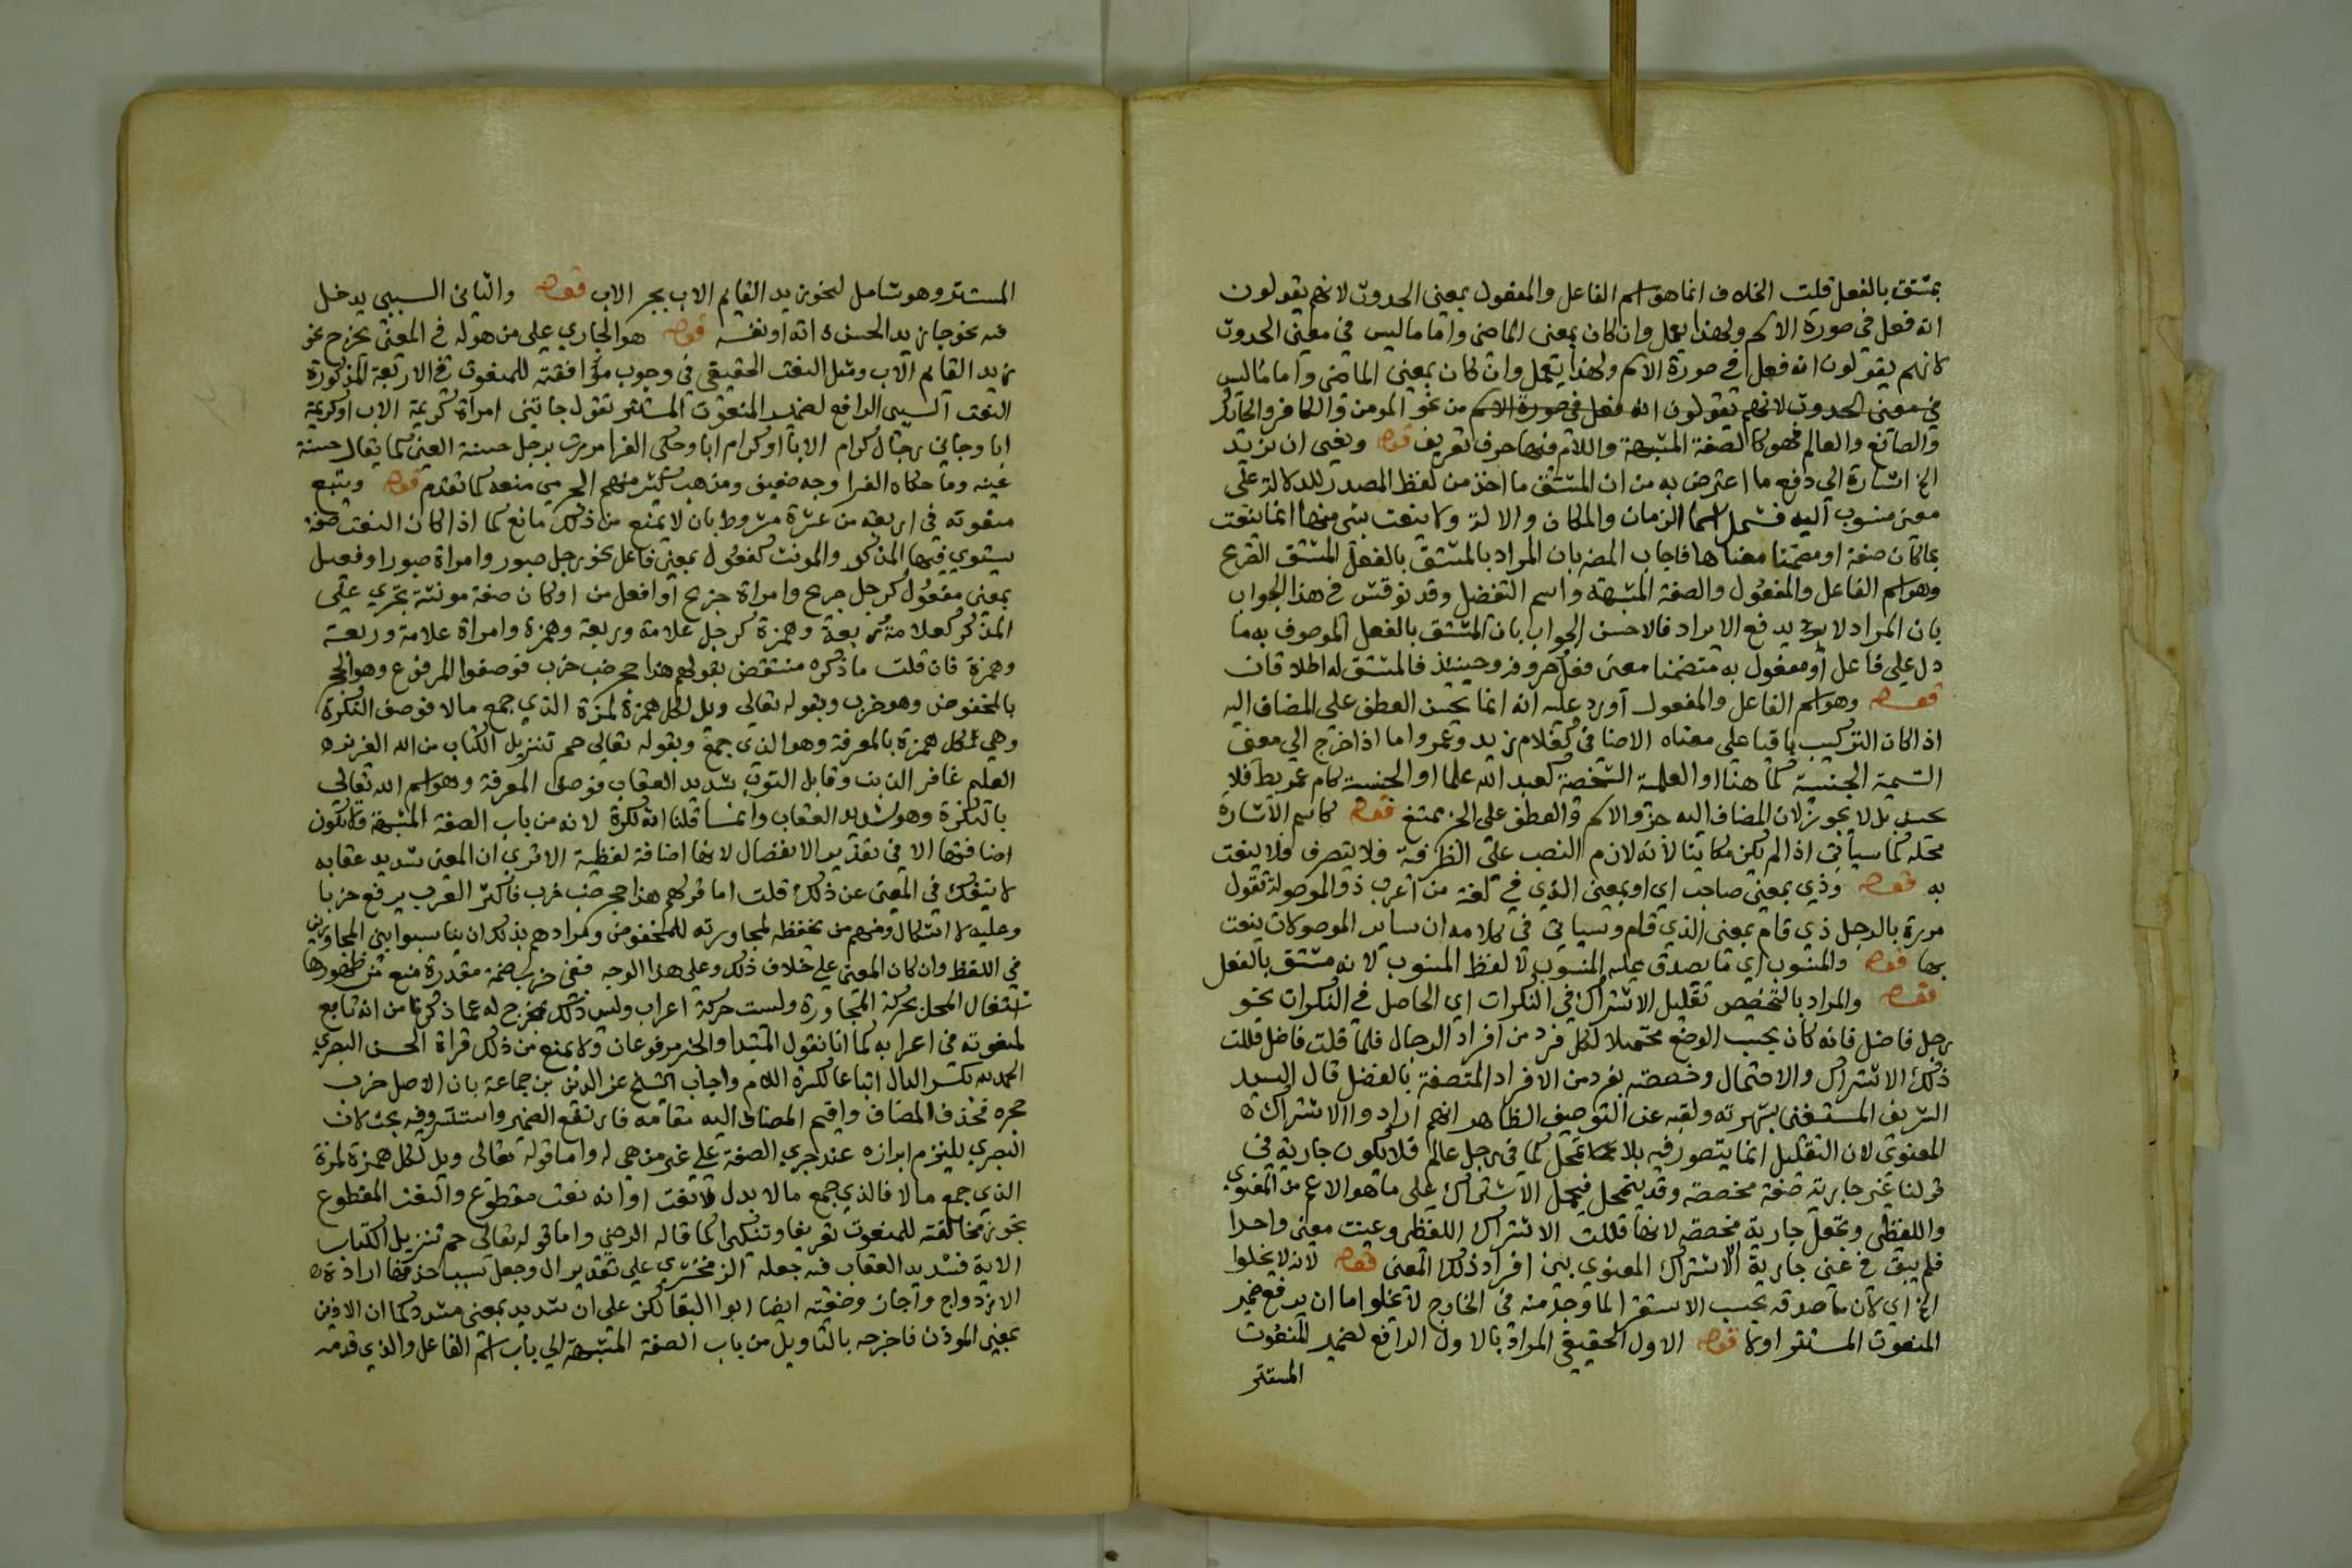 بمشتق بالفعل قلت الخلاف انما هو اسم الفاعل والمفعول بمعنى الحدوث لانهم يقولون
انه فعل في صورة الاسم ولهذا يعمل وان كان بمعنى الماضي واما ما ليس في معنى الحدوث
لانهم يقولون انه فعل في صورة الاسم ولهذا يعمل وان كان بمعنى الماضي واما ما ليس
في معنى الحدوث لانهم يقولون انه فعل في صورة الاسم من نحو المومن والكافر والحائك
والصانع والعالم فهو كالصفة المشبهة واللام فيها حرف تعريف قوله ونعنى ان نريد
الخ اشارة الي دفع ما اعترض به من ان المشتق ما اخذ من لفظ المصدر للدلالة على
معنى منسوب اليه فشمل اسما الزمان والمكان والالة ولا ينعت بشي منها انما ينعت
بما كان صفة او مضمنا معناها فاجاب المص بان المراد بالمشتق بالفعل المشتق
وهو اسم الفاعل والمفعول والصفة المشبهة واسم التفضيل وقد نوقش في هذا الجواب
بان المراد لا يدفع الايراد فالاحسن الجواب بان المشتق بالفعل الموصوف به ما
دل على فاعل او مفعول به متضمنا معنى فعل حروفه وحينئذ فالمشتق له اطلاقان
قوله وهو اسم الفاعل والمفعول اورد عليه انه انما يحسن العطف على المضاف اليه
اذا كان التركيب باقيا على معناه الاضافي كغلام زيد وعمرو اما اذا خرج الي معنى
التسمية الجنسية كما هنا او العلمية الشخصية كعبد الله علما او الجنسية كام عريط فلا
يحسن بل لا يجوز لان المضاف اليه جزو الاسم والعطف على الجز ممتنع قوله كاسم الاشارة
محله كما سياتي اذا لم يكن مكانيا لانه لازم النصب على الظرفية فلا يتصرف فلا ينعت
به قوله وذي بمعنى صاحب اي او بمعنى الذي في لغة من اعرب ذو الموصولة تقول
مررة بالرجل ذي قام بمعنى الذي قام وسياتي في كلامه ان ساير الموصولات ينعت
بها قوله والمنسوب اي ما يصدق عليه المنسوب لا لفظ المنسوب لانه مشتق بالفعل
قوله والمراد بالتخصيص تقليل الاشتراك في النكرات اي الحاصل في النكرات نحو
رجل فاضل فانه كان بحسب الوضع محتملا لكل فرد من افراد الرجال فلما قلت فاضل قللت
ذلك الاشتراك والاحتمال وخصصته بفرد من الافراد المتصفة بالفضل قال السيد
الشريف المستغنى بشهرته ولقبه عن التوصيف الظاهر انهم ارادوا الاشتراك
المعنوي لان التقليل انما يتصور فيه بلا تمحل كما في رجل عالم فلا يكون جارية في
قولنا عين جارية صفة مخصصة وقد يتمحل فيحمل الاشتراك على ما هو الاعم من المعنوي
واللفظي وتجعل جارية مخصصة لانها قللت الاشتراك اللفظي وعينت معنى واحدا
فلم يبق في عين جارية الا الاشتراك المعنوي بين افراد ذلك المعنى قوله لانه لا يخلوا
الخ اي لان ما صدقه بحسب الاستقرا لما وجد منه في الخارج لا يخلوا اما ان يرفع ضمير
المنعوت المستتر اولا قوله الاول الحقيقي المراد بالاول الرافع لضمير المنعوت
المستتر
المستتر وهو شامل لنحو زيد القايم الاب بجر الاب قوله والثاني السببي يدخل
فيه نحو جا زيد الحسن اته او نفسه قوله هو الجاري على من هو له في المعنى يخرج نحو
زيد القايم الاب ومثل النعت الحقيقي في وجوب موافقته للمنعوت في الاربعة المذكورة
النعت السببي الرافع لضمير المنعوت المستتر تقول جاتني امراة كريمة الاب او كريمة
ابا وجاني رجال كرام الابا او كرام ابا وحكى الفرا مررت برجل حسنة العين كما يقال حسنة
عينه وما حكاه الفرا وجه ضعيف ومذهب كثير منهم الجرمي منعه كما تقدم قوله ويتبع
منعوته في اربعة من عشرة مشروط بان لا يمنع من ذلك مانع كما اذا كان النعت صفة
يستوي فيها المذكر والمونث كفعول بمعنى فاعل نحو رجل صبور وامراة صبور او فعيل
بمعنى مفعول كرجل جريح وامراة جريح او افعل من او كان صفة مونثة تجري على
المذكر كعلامة ربعة وهمزة كرجل علامة وربعة وهمزة وامراة علامة وربعة
وهمزة فان قلت ما ذكره منتقض بقولهم هذا حجر ضب خرب فوصفوا المرفوع وهو الحجر
بالمخفوض وهو خرب وبقوله تعالى ويل لكل همزة لمزة الذي جمع مالا فوصف النكرة
وهي لكل همزة بالمعرفة وهو الذي جمع وبقوله تعالي حم تنزيل الكتاب من الله العزيز
العليم غافر الذنب وقابل التوب شديد العقاب فوصف المعرفة وهو اسم الله تعالى
بالنكرة وهو شديد العقاب وانما قلنا انه نكرة لانه من باب الصفة المشبهة فلا تكون
اضافتها الا في تقدير الانفصال لانها اضافة لفظية الا ترى ان المعنى شديد عقابه
لا ينفك في المعنى عن ذلك قلت اما قولهم هذا حجر ضب خرب فاكثر العرب يرفع خربا
وعليه لا اشكال ومنهم من يخفظه لمجاورته للمخفوض ومرادهم بذلك ان يناسبوا بين المجاورين
في اللفظ وان كان المعنى على خلاف ذلك وعلى هذا الوجه ففي خرب ضمة مقدرة منع من ظهورها
اشتغال المحل بحركة المجاورة وليست حركة اعراب وليس ذلك بمخرج له عما ذكرنا من انه تابع
لمنعوته في اعرابه كما انا نقول المبتدا والخبر مرفوعان ولا يمنع من ذلك قراة الحسن البصري
الحمد لله بكسر الدال اتباعا لكسرة اللام واجاب الشيخ عز الدين بن جماعة بان الاصل خرب
حجره فحذف المضاف واقيم المضاف اليه مقامه فارتفع الضمير واستتر وفيه بحث لان
البصري يلتزم ابرازه عند جري الصفة على غير من هي له واما قوله تعالى ويل لكل همزة لمزة
الذي جمع مالا فالذي جمع مالا بدل لا نعت او انه نعت مقطوع والنعت المقطوع
يجوز مخالفته للمنعوت تعريفا وتنكيرا كما قاله الرضي واما قوله تعالى حم تنزيل الكتاب
الاية فشديد العقاب فيه جعله الزمخشري على تقدير ال وجعل سبب حذفها ارادة
الازدواج واجاز وصفيته ايضا ابوا البقا لكن على ان شديد بمعنى مشدد كما ان الاذين
بمعنى الموذن فاخرجه بالتاويل من باب الصفة المشبهة الي باب اسم الفاعل والذي قدمه